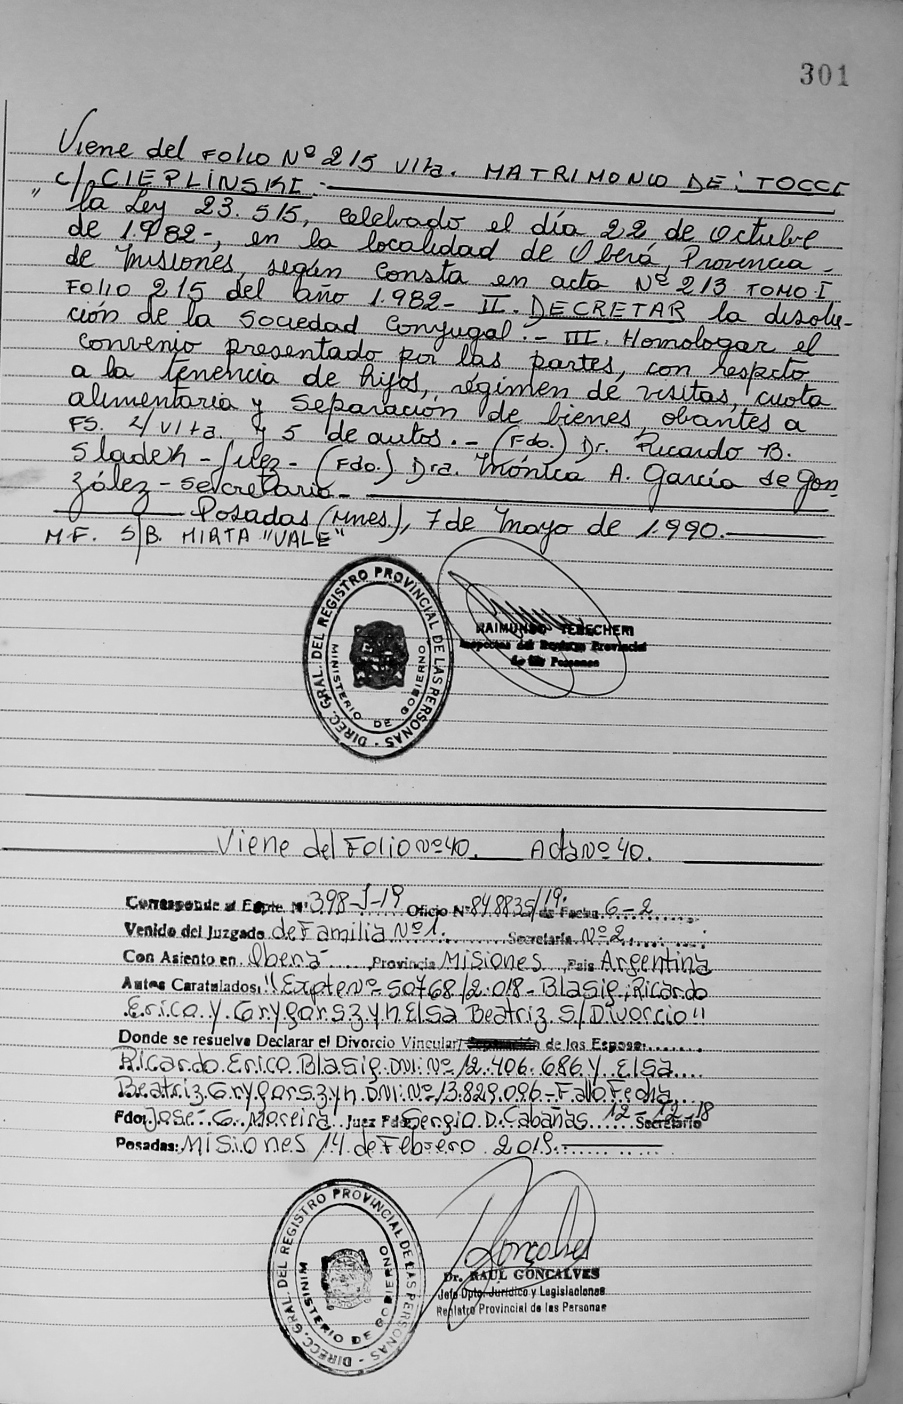 301
Viene del FOLIO Nº 215 Vlta. MATRIMONIO DE: TOCCE
c/ CIEPLINSKI.
" la Ley 23.515, celebrado el día 22 de Octubre
de 1.982-, en la localidad de Oberá, Provincia
de Misiones, según consta en acta Nº 213 TOMO I
FOLIO 215 del año 1.982- II. DECRETAR la disolu-
ción de la Sociedad Conyugal.- III. Homologar el
convenio presentado por las partes, con respecto
a la tenencia de hijos, régimen de visitas, cuota
alimentaria y separación de bienes, obantes a
FS. 4/Vlta. y 5 de autos.- (Fdo.) Dr. Ricardo B.
Sladek - Juez - (Fdo.) Dra. Mónica A. García de Gon
zález - Secretario-
Posadas (Mnes.), 7 de Mayo de 1.990.-
M.F. S/B. MIRTA "VALE"
DIREC. GRAL. DEL REGISTRO PROVINCIAL DE LAS PERSONAS -
MINISTERIO DE GOBIERNO
RAIMUNDO TERECHERI
Inspector del Registro Provincial
de las Personas
Viene del Folio Nº 40. Acta Nº 40.
Corresponde al Expte. Nº 398-J-19 Oficio Nº 848835/19. de Fecha 6-2
Venido del Juzgado de Familia Nº 1. Secretaría Nº 2
Con Asiento en Obera Provincia Misiones, País Argentina
Autos Caratulados: "Expte Nº 50768/2.018 - Blasig, Ricardo
Erico y Grygorszyn Elsa Beatriz S/Divorcio"
Donde se resuelve Declarar el Divorcio Vincular/ de los Esposos
Ricardo Erico Blasig DNI: Nº 12.406.686 y Elsa
Beatriz Grygorszyn DNI: Nº 13.829.096 - Fallo Fecha
12-12-18
Fdo: José G. Moreira Juez Fdo: Sergio D. Cabañas Secretario
Posadas: Misiones 14 de Febrero 2019
DIRECC. GRAL. DEL REGISTRO PROVINCIAL DE LAS PERSONAS -
MINISTERIO DE GOBIERNO
Dr. RAUL GONCALVES
Jefe Dpto. Jurídico y Legislaciones
Registro Provincial de las Personas